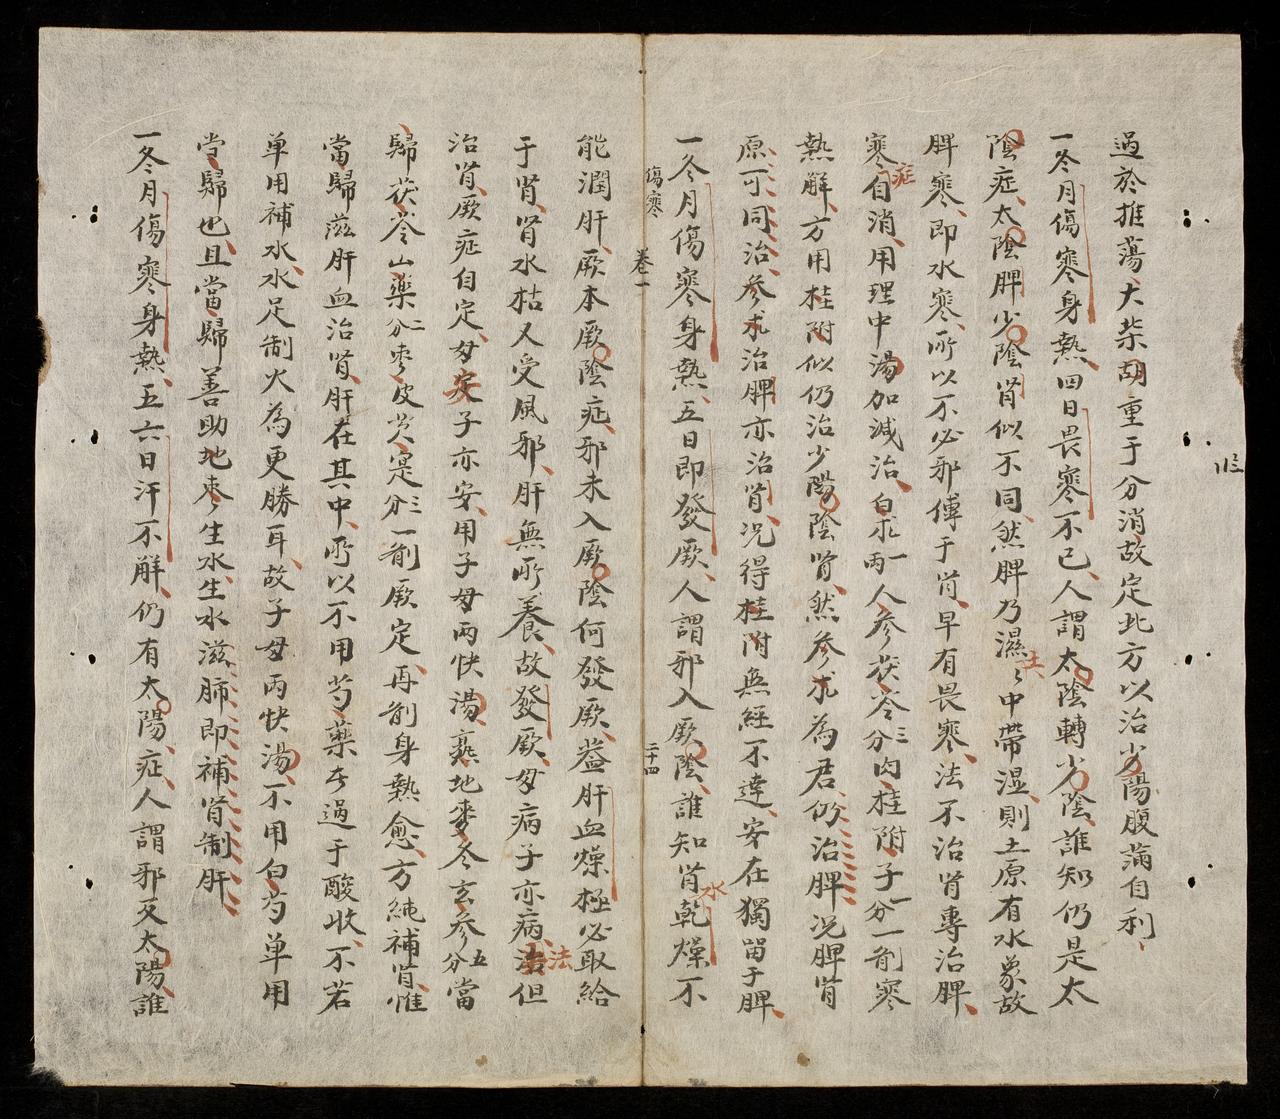 過於推蕩大柴胡重于分消故定北方以治少陽腹滿自利
一冬月傷寒身熱四日畏寒不已人謂太陰轉少陰誰知仍是太
陰症太陰脾少陰腎似不同然脾乃濕土〻中帶湿則土原有水象故
脾寒即水寒所以不必邪傳于腎早有畏寒法不治腎專治脾
寒症自消用理中湯加減治白朮一兩人參茯苓三分肉桂附子一分一剤寒
熱解方用桂附似仍治少陽陰腎然參朮為君仍治脾况脾腎
原可同治參朮治脾亦治腎况得桂附無經不達安在獨留于脾
一冬月傷寒身熱五日即發厥人謂邪入厥陰誰知腎水乾燥不
傷寒
卷一
二十四
能潤肝厥本厥陰症邪未入厥陰何發厥葢肝血燥極必取給
于腎腎水枯又受風邪肝無所養故發厥母病子亦病治法但
治腎厥症自定母定子亦安用子母兩快湯熟地麥冬玄參五分當
歸茯苓山藥二分枣皮芡寔三分一剤厥定再剤身熱愈方純補腎惟
當歸滋肝血治腎肝在其中所以不用芍藥者過于酸收不若
单用補水水足制火為更勝耳故子母兩快湯不用白芍单用
当歸也且當歸善助地枣生水生水滋肺即補腎制肝
一冬月傷寒身熱五六日汗不解仍有太陽症人謂邪又太陽誰